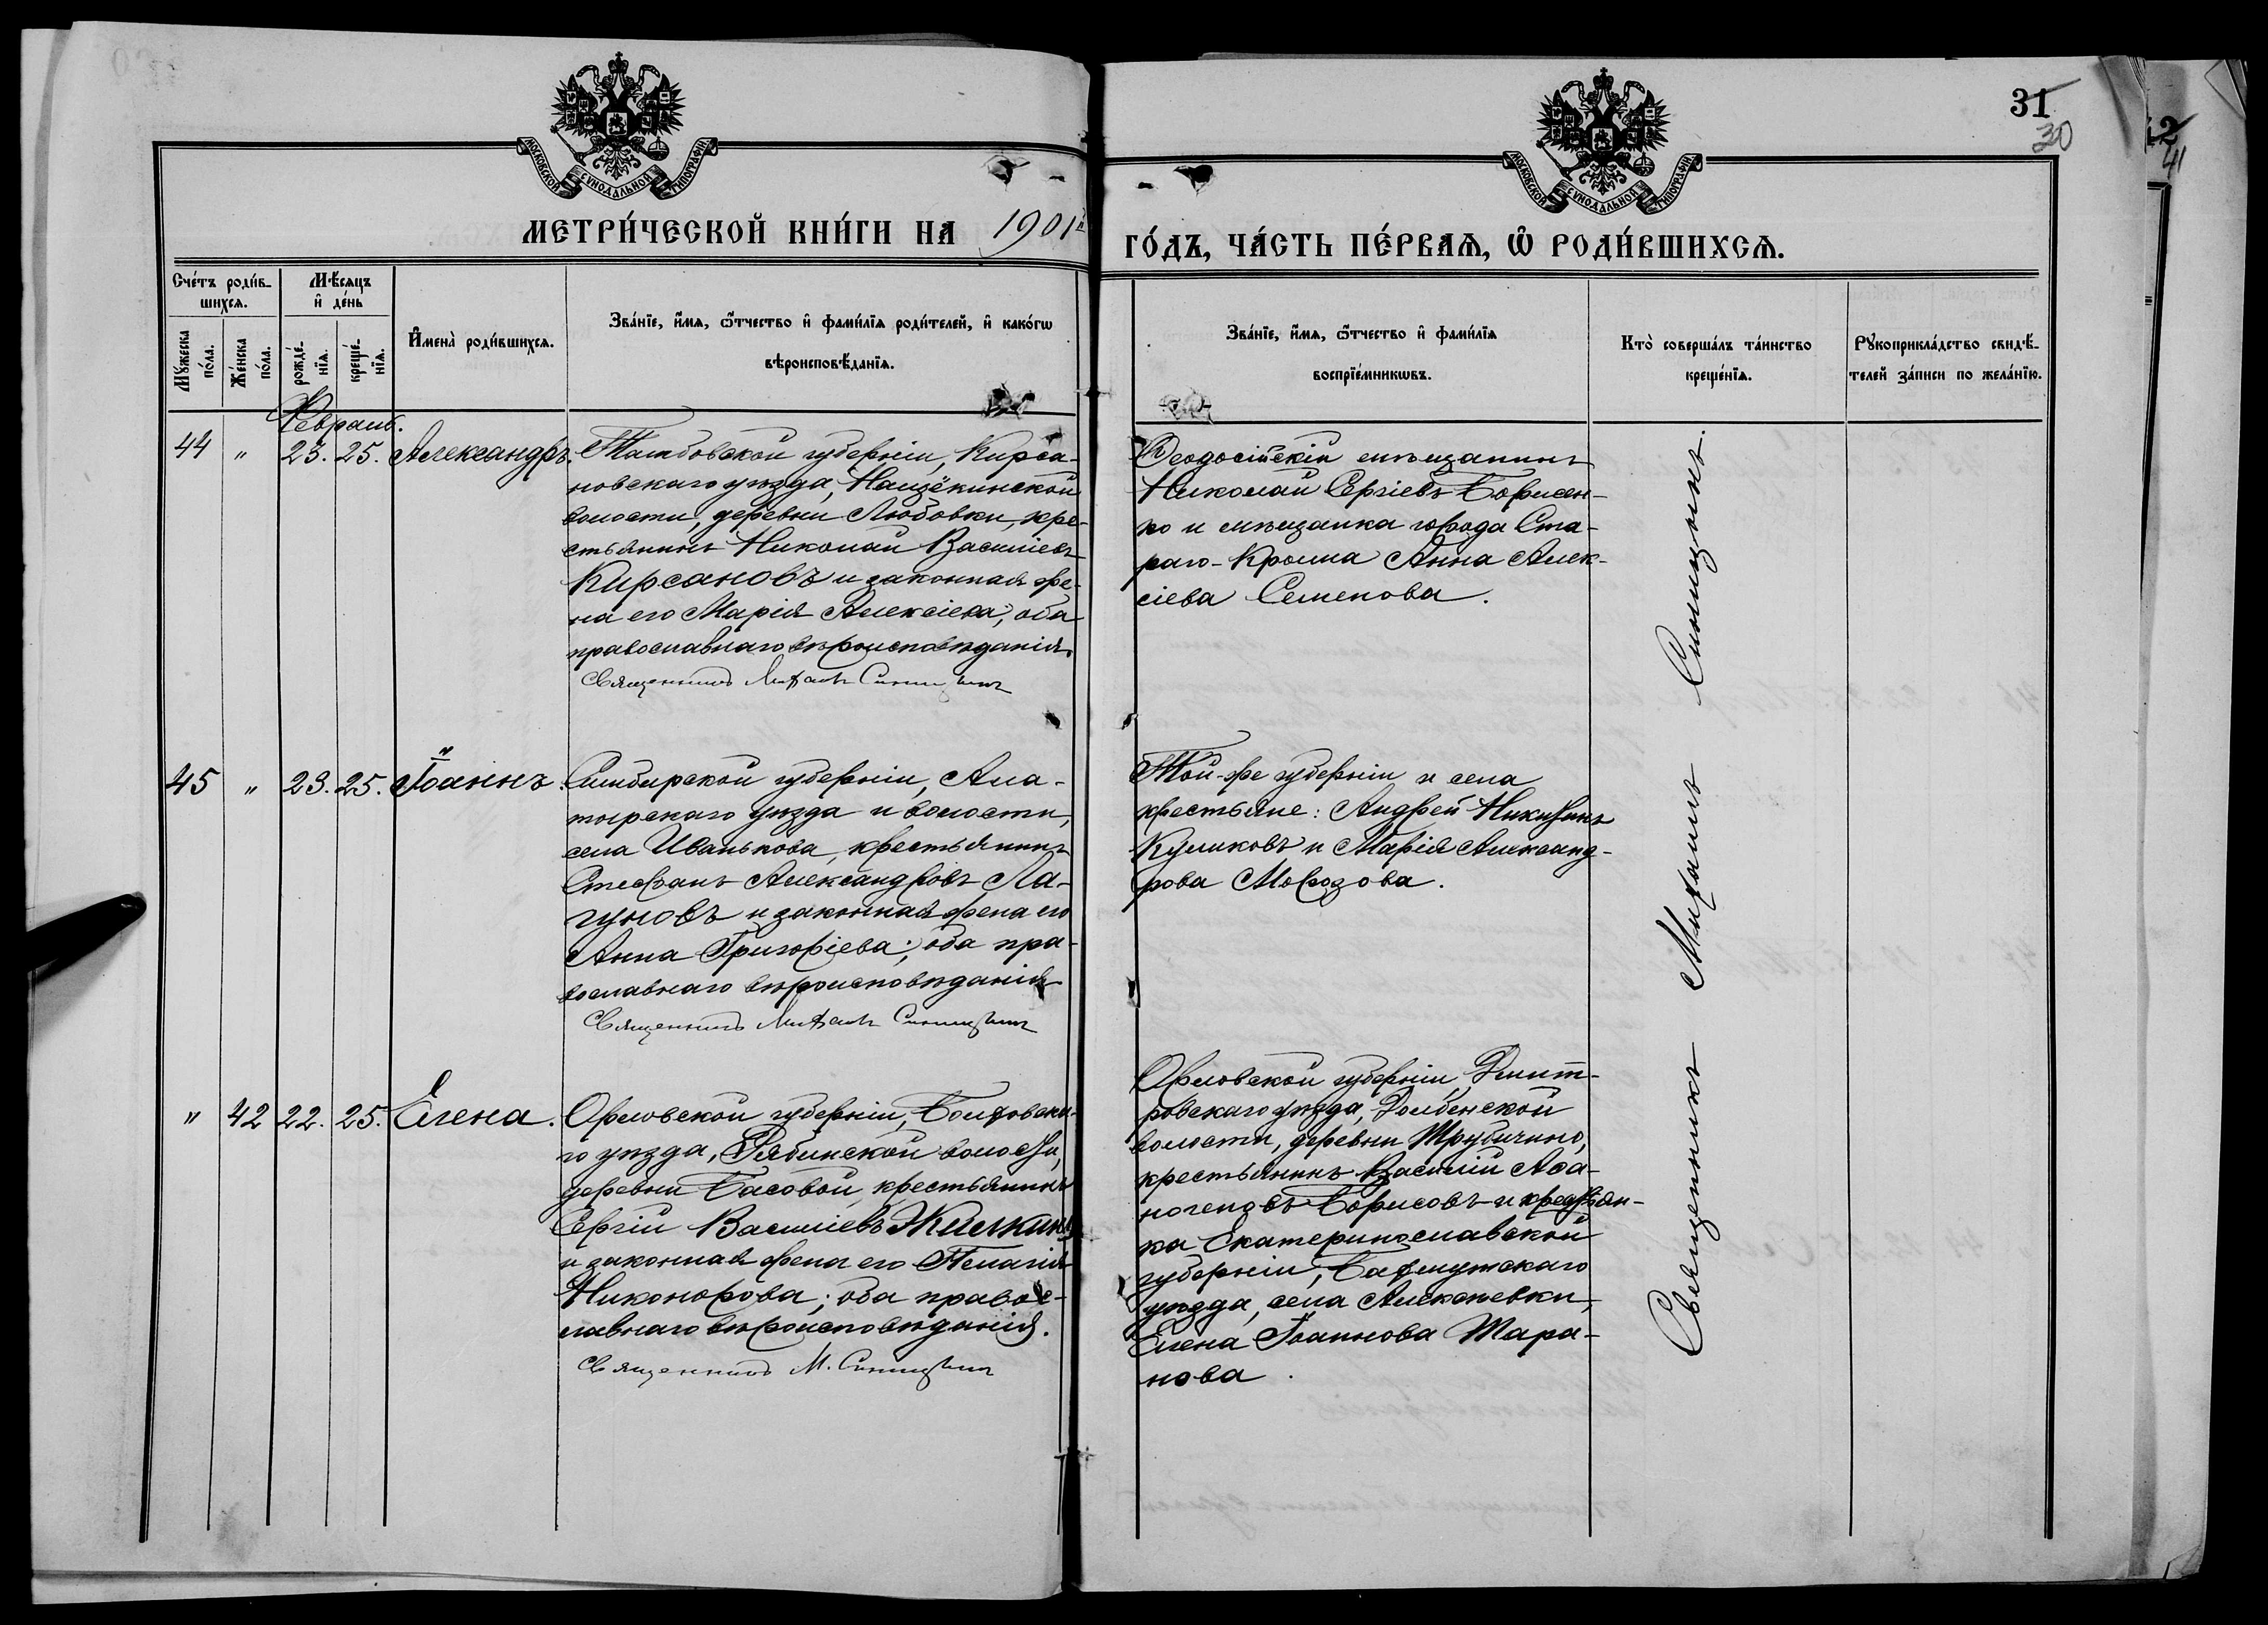 31
30
42
41
МОСКОВСКОЙ СѴНОДАЛЬНОЙ ТИПОГРАФІИ
МОСКОВСКОЙ СѴНОДАЛЬНОЙ ТИПОГРАФІИ
МЕТРИ́ЧЕСКОЙ КНИ́ГИ НА 1901й
ГО́ДЪ, ЧА́СТЬ ПЕ́РВАѦ, Ѡ҆ РОДИ́ВШИХСѦ.
Сче́тъ роди́в-
шихсѧ.
Мꙋжеска по́ла.
Же́нска по́ла.
Мѣ́сѧцъ
и҆ де́нь
рожде́-
нїѧ.
креще́-
нїѧ.
И҆мена̀ роди́вшихсѧ.
Зва́нїе, и҆́мѧ, ѻ҆́тчество и҆ фами́лїѧ роди́телей, и҆ како́гѡ
вѣроисповѣ́данїѧ.
Зва́нїе, и҆́мѧ, ѻ҆́тчество и҆ фами́лїѧ
воспрїе́мникѡвъ.
Кто̀ соверша́лъ та́инство
креще́нїѧ.
Рꙋкоприкла́дство свидѣ́-
телей за́писи по жела́нїю.
Февраль.
44 " 23. 25. Александръ.
Тамбовской губерніи, Кирса-
новскаго уѣзда, Нащёкинской
волости, деревни Любовки, кре-
стьянинъ Николай Васильевъ
Кирсановъ и законная же-
на его Марія Алексіева, оба
православнаго вѣроисповѣданія.
Священникъ Михаилъ Синицынъ
Ѳеодосійскій мѣщанинъ
Николай Сергіевъ Борисен-
ко и мѣщанка города Ста-
раго-Крыма Анна Алек-
сіева Семенова.
45 " 23. 25. Іоаннъ.
Симбирской губерніи, Ала-
тырскаго уѣзда и волости,
села Иванькова, крестьянинъ
Стефанъ Александровъ Ла-
гуновъ и законная жена его
Анна Григоріева; оба пра-
вославнаго вѣроисповѣданія
Священникъ Михаилъ Синицынъ
Той-же губерніи и села
крестьяне: Андрей Никитинъ
Куликовъ и Марія Александ-
рова Морозова.
" 42 22. 25. Елена.
Орловской губерніи, Болховска-
го уѣзда, Рябинской волости,
деревни Басовой, крестьянинъ
Сергій Васильевъ Жилкинъ
и законная жена его Пелагія
Никонорова; оба правос-
лавнаго вѣроисповѣданія.
Священникъ М. Синицынъ
Орловской губерніи, Дмит-
ровскаго уѣзда, Долбенской
волости, деревни Трубичино,
крестьянинъ Василій Аѳи-
ногеновъ Борисовъ и крестьян-
ка Екатеринославской
губерніи, Бахмутскаго
уѣзда, села Алексѣевки,
Елена Іоаннова Тара-
нова.
Священникъ Михаилъ Синицынъ.